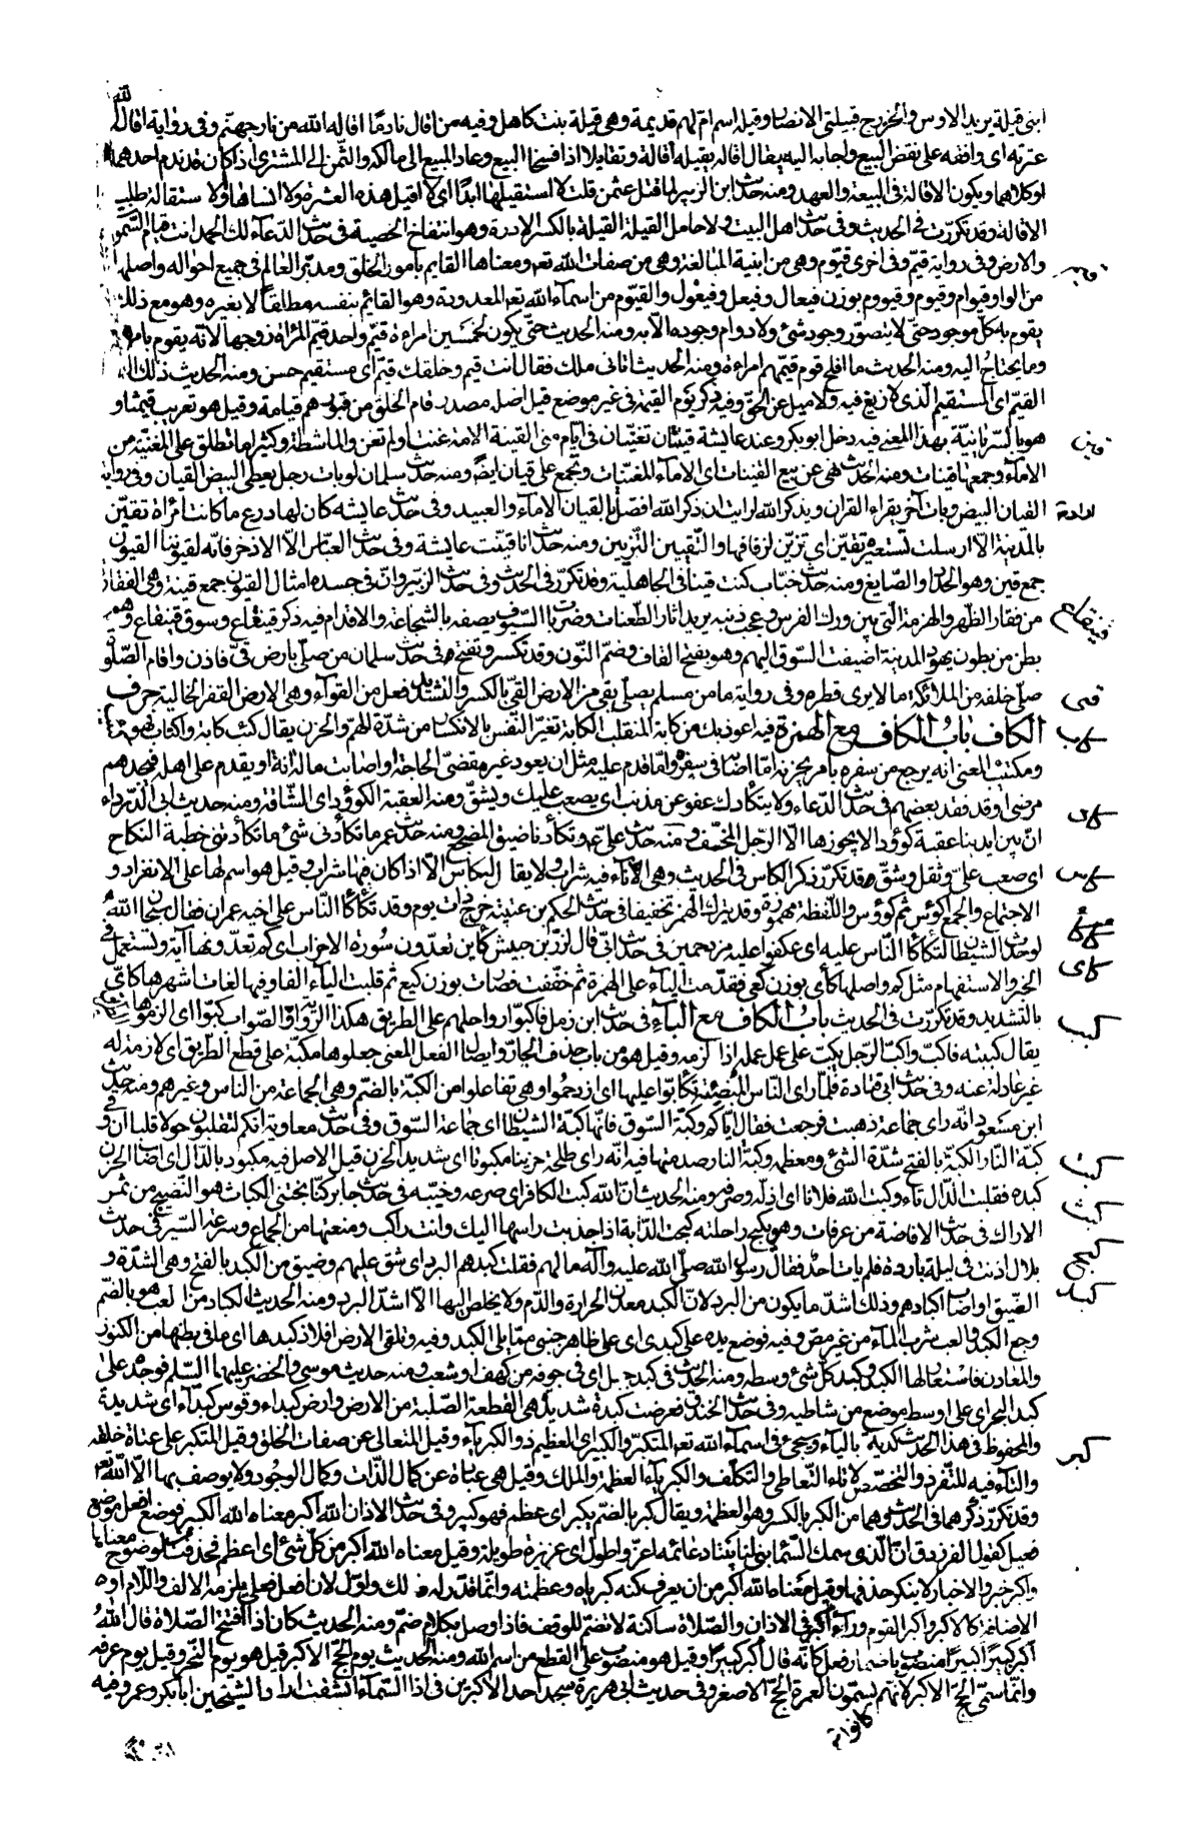 ابنى قيلة يريد الاوس والخزرج قبيلتى الانصار وقيلة اسم ام لهم قديمة وهى قيلة بنت كاهل وفيه من اقال نادمًا اقاله الله من نار جهنم وفى رواية اقال الله
عثرته اى وافقه على نقض البيع واجابه اليه يقال اقاله يقيله اقالة وتقايلا اذا فسخا البيع وعاد المبيع الى مالكه والثمن الى المشترى اذا كان قد ندم احدهما
او كلاهما ويكون الاقالة فى البيعة والعهد ومنه حديث ابن الزبير لما قتل عثمن قلت لا استقيلها ابدًا اى لا اقيل هذه العثرة ولا انساها والاستقالة طلب
الاقالة وقد تكررت فى الحديث وفى حديث اهل البيت ولا حامل القيلة القيلة بالكسر الادرة وهو انتفاخ الخصية فى حديث الدعاء لك الحمد انت قيام السموات
والارض وفى رواية قيم وفى اخرى قيوم وهى من ابنية المبالغة وهى من صفات الله تعم ومعناها القايم بامور الخلق ومدبر العالم فى جميع احواله واصلها
من الواو قيوام وقيوم وقيووم بوزن فيعال وفيعل وفيعول والقيوم من اسماء الله تعم المعدودة وهو القائم بنفسه مطلقًا لا بغيره وهو مع ذلك
يقوم به كل موجود حتى لا يتصور وجود شئ ولا دوام وجوده الا به ومنه الحديث حتى يكون لخمسين امراءة قيم واحد قيم المراة زوجها لانه يقوم بامرها
وما يحتاج اليه ومنه الحديث ما افلح قوم قيمهم امراءة ومنه الحديث اتانى ملك فقال انت قيم وخلقك قيم اى مستقيم حسن ومنه الحديث ذلك الدين
القيم اى المستقيم الذى لا زيغ فيه ولا ميل عن الحق وفيه ذكر يوم القيمة فى غير موضع قيل اصله مصدر قام الخلق من قبورهم قيامة وقيل هو تعريب قيمثا و
هو بالسريانية بهذا المعنى فيه دخل ابو بكر وعند عايشة قينتان تغنيان فى ايام منى القينة الامة غنت او لم تغن والماشطة وكثيرا ما تطلق على المغنية من
الاماء وجمعها قينات ومنه الحديث نهى عن بيع القينات اى الاماء المغنيات وتجمع على قيان ايضًا ومنه حديث سلمان لو بات رجل يعطى البيض القيان وفى رواية
القيان البيض وبات آخر يقراء القران ويذكر الله لرايت ان ذكر الله افضل بالقيان الاماء والعبيد وفى حديث عايشه كان لها درع ما كانت امراة تقين
بالمدينة الا ارسلت تستعيره تقين اى تزين لزفافها والتقيين التزيين ومنه حديث انا قينت عايشة وفى حديث العباس الا الاذخر فانه لقيوننا القيون
جمع قين وهو الحداد والصايغ ومنه حديث خباب كنت قينا فى الجاهلية وقد تكرر فى الحديث وفى حديث الزبير وان فى جسده امثال القيون جمع قينة وهى الفقارة
من فقار الظهر والهزمة التى بين ورك الفرس وعجب ذنبه يريد اثار الطعنات وضربات السيوف يصفه بالشجاعة والاقدام فيه ذكر قينقاع وسوق قينقاع وهم
بطن من بطون يهود المدينة اضيفت السوق اليهم وهو بفتح القاف وضم النون وقد تكسر وتفتح فى حديث سلمان من صلى بارض قى فاذن واقام الصلوة
صلى خلفه من الملائكة ما لا يرى قطره وفى رواية ما من مسلم يصلى بقى من الارض القى بالكسر والتشديد فعل من القواء وهى الارض القفر الخالية حرف
الكاف باب الكاف مع الهمزة فيه اعوذ بك من كابة المنقلب الكابة تغير النفس بالانكسار من شدة الهم والحزن يقال كئب كابة واكتاب فهو كئيب
ومكتئب المعنى انه يرجع من سفره بامر يحزنه اما اصابه فى سفره واما قدم عليه مثل ان يعود غير مقضى الحاجة او اصابت ماله افة او يقدم على اهله فيجدهم
مرضى او قد فقد بعضهم فى حديث الدعاء ولا يتكادك عفو عن مذنب اى يصعب عليك ويشق ومنه العقبة الكؤود اى الشاقة ومنه حديث ابى الدرداء
ان بين ايدينا عقبة كؤودا لا يجوزها الا الرجل المخف ومنه حديث على عم وتكأدنا ضيق المضجع ومنه حديث عمر ما تكأدنى شئ ما تكأدتنى خطبة النكاح
اى صعب على وثقل وشق وقد تكرر ذكر الكاس فى الحديث وهى الاناء فيه شراب ولا يقال لها كاس الا اذا كان فيها شراب وقيل هو اسم لها على الانفراد و
الاجتماع والجمع اكؤس ثم كؤوس واللفظة مهموزة وقد يترك الهمز تخفيفا فى حديث الحكم بن عتيبة خرج ذات يوم وقد تكأكأ الناس على اخيه عمران فقال سبحان الله
لو حدث الشيطان لتكأكأ الناس عليه اى عكفوا عليه مزدحمين فى حديث ابى قال لزر بن حبيش كأين تعدون سورة الاحزاب اى كم تعدونها آية وتستعمل فى
الخبر والاستفهام مثل كم واصلها كأى بوزن كعى فقدمت الياء على الهمزة ثم خففت فصارت بوزن كيع ثم قلبت الياء الفا وفيها لغات اشهرها كاى
بالتشديد وقد تكررت فى الحديث باب الكاف مع الباء فى حديث ابن زمل فاكبوا رواحلهم على الطريق هكذا الرواية والصواب كبوا اى الزموها
يقال كببته فاكب واكب الرجل يكب على عمل عمله اذا لزمه وقيل هو من باب حذف الجار وايصال الفعل المعنى جعلوها مكبة على قطع الطريق اى لازمة له
غير عادلة عنه وفى حديث ابى قتادة فلما راى الناس الميضئة تكابوا عليها اى ازدحموا وهى تفاعلوا من الكبة بالضم وهى الجماعة من الناس وغيرهم ومنه حديث
ابن مسعود انه راى جماعة ذهبت فرجعت فقال اياكم وكبة السوق فانها كبة الشيطان اى جماعة السوق وفى حديث معاوية انكم لتقلبون حولا قلبا ان وقى
كبة النار الكبة بالفتح شدة الشئ ومعظمه وكبة النار صدمتها فيه انه راى طلحة حزينا مكبوتا اى شديد الحزن قيل الاصل فيه مكبود بالدال اى اصاب الحزن
كبده فقلبت الدال تاء وكبت الله فلانا اى اذله وصرفه ومنه الحديث ان الله كبت الكافر اى صرعه وخيبه فى حديث جابر كنا نجتنى الكباث هو النضيج من ثمر
الاراك فى حديث الافاضة من عرفات وهو يكبح راحلته كبحت الدابة اذا جذبت راسها اليك وانت راكب ومنعتها من الجماح وسرعة السير فى حديث
بلال اذنت فى ليلة باردة فلم يات احد فقال رسول الله صلى الله عليه وآله ما لهم فقلت كبدهم البرد اى شق عليهم وضيق من الكبد بالفتح وهى الشدة و
الضيق او اصاب اكبادهم وذلك اشد ما يكون من البرد لان الكبد معدن الحرارة والدم ولا يخلص اليها الا اشد البرد ومنه الحديث الكباد من العب هو بالضم
وجع الكبد والعب شرب الماء من غير مص وفيه فوضع يده على كبدى اى على ظاهر جنبى مما يلى الكبد وفيه وتلقى الارض افلاذ كبدها اى ما فى بطنها من الكنوز
والمعادن فاستعار لها الكبد وكبد كل شئ وسطه ومنه الحديث فى كبد جبل اى فى جوفه من كهف او شعب ومنه حديث موسى والخضر عليهما السلم فوجده على
كبد البحر اى على اوسط موضع من شاطيه وفى حديث الخندق فعرضت كبدة شديدة هى القطعة الصلبة من الارض وارض كبداء وقوس كبداء اى شديدة
والمحفوظ فى هذا الحديث كدية بالياء وسيجئ فى اسماء الله تعم المتكبر والكبير اى العظيم ذو الكبرياء وقيل المتعالى عن صفات الخلق وقيل المتكبر على عتاة خلقه
والتاء فيه للتفرد والتخصص لا تاء التعاطى والتكلف والكبرياء العظمة والملك وقيل هى عبارة عن كمال الذات وكمال الوجود ولا يوصف بها الا الله تعم
وقد تكرر ذكرهما فى الحديث وهما من الكبر بالكسر وهو العظمة ويقال كبر بالضم يكبر اى عظم فهو كبير وفى حديث الاذان الله اكبر معناه الله الكبير فوضع افعل موضع
فعيل كقول الفرزدق ان الذى سمك السماء بنى لنا بيتا دعائمه اعز واطول اى عزيزة طويلة وقيل معناه الله اكبر من كل شئ اى اعظم فحذفت لوضوح معناها
واكبر خبر والاخبار لا ينكر حذفها وقيل معناه الله اكبر من ان يعرف كنه كبريائه وعظمته وانما قدر له ذلك واول لان افعل فعلى يلزمه الالف واللام او
الاضافة كالاكبر واكبر القوم وراء اكبر فى الاذان والصلاة ساكنة لا تضم للوقف فاذا وصل بكلام ضم ومنه الحديث كان اذا افتتح الصلاة قال الله
اكبر كبيرًا كبيرًا منصوب باضمار فعل كانه قال اكبر كبيرًا وقيل هو منصوب على القطع من اسم الله ومنه الحديث يوم الحج الاكبر قيل هو يوم النحر وقيل يوم عرفة
وانما سمى الحج الاكبر لانهم يسمون العمرة الحج الاصغر وفى حديث ابى هريرة سجد احد الاكبرين فى اذا السماء انشقت اراد الشيخين ابا بكر وعمر وفيه
قيم
قين
قينقاع
قى
كاب
كاد
كاس
كأكأ
كاى
كبب
كبت
كبث
كبح
كبد
كبر